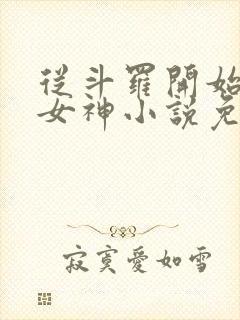 從斗羅開始
女神小說免
寂寞愛如雪